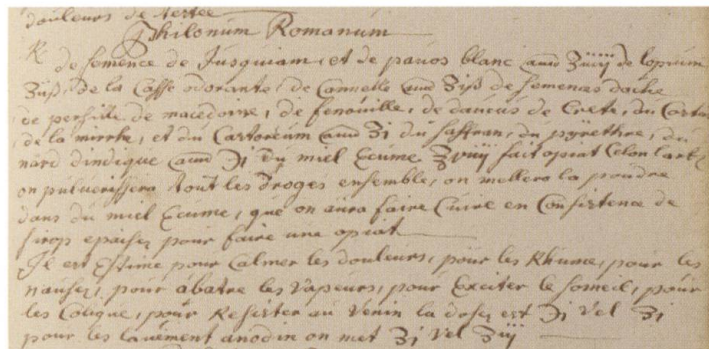 douleurs de testee
Philonum Romanum
℞ de semence de Jusquiam, et de pavos blanc ana ʒuiij de lopium
ʒiijß, de la Casse odorante, de Cannelle ana ʒiß de semences dache
de persille de macedoine, de fenouille, de daucus de Crete, du Costus
de la mirrhe, et du Castoreum ana ʒi du saffran, du pyrethre, du
nard dindique ana ℈i du miel Ecume ℥viij fait opiat Celon lart
on pulverissera tout les droges ensemble, on mellera la poudre
dans du miel Ecume, que on aura faire Cuire en Consistence de
sirop epaissy pour faire une opiat
Jl est Estime pour Calmer les douleurs, pour les Rhume, pour les
nausez, pour abatre les vapeurs, pour Exciter le someil, pour
les Colique, pour Resister au venin la dosez est ℈i vel ʒi
pour les lavement anodin on met ʒi vel ʒiij